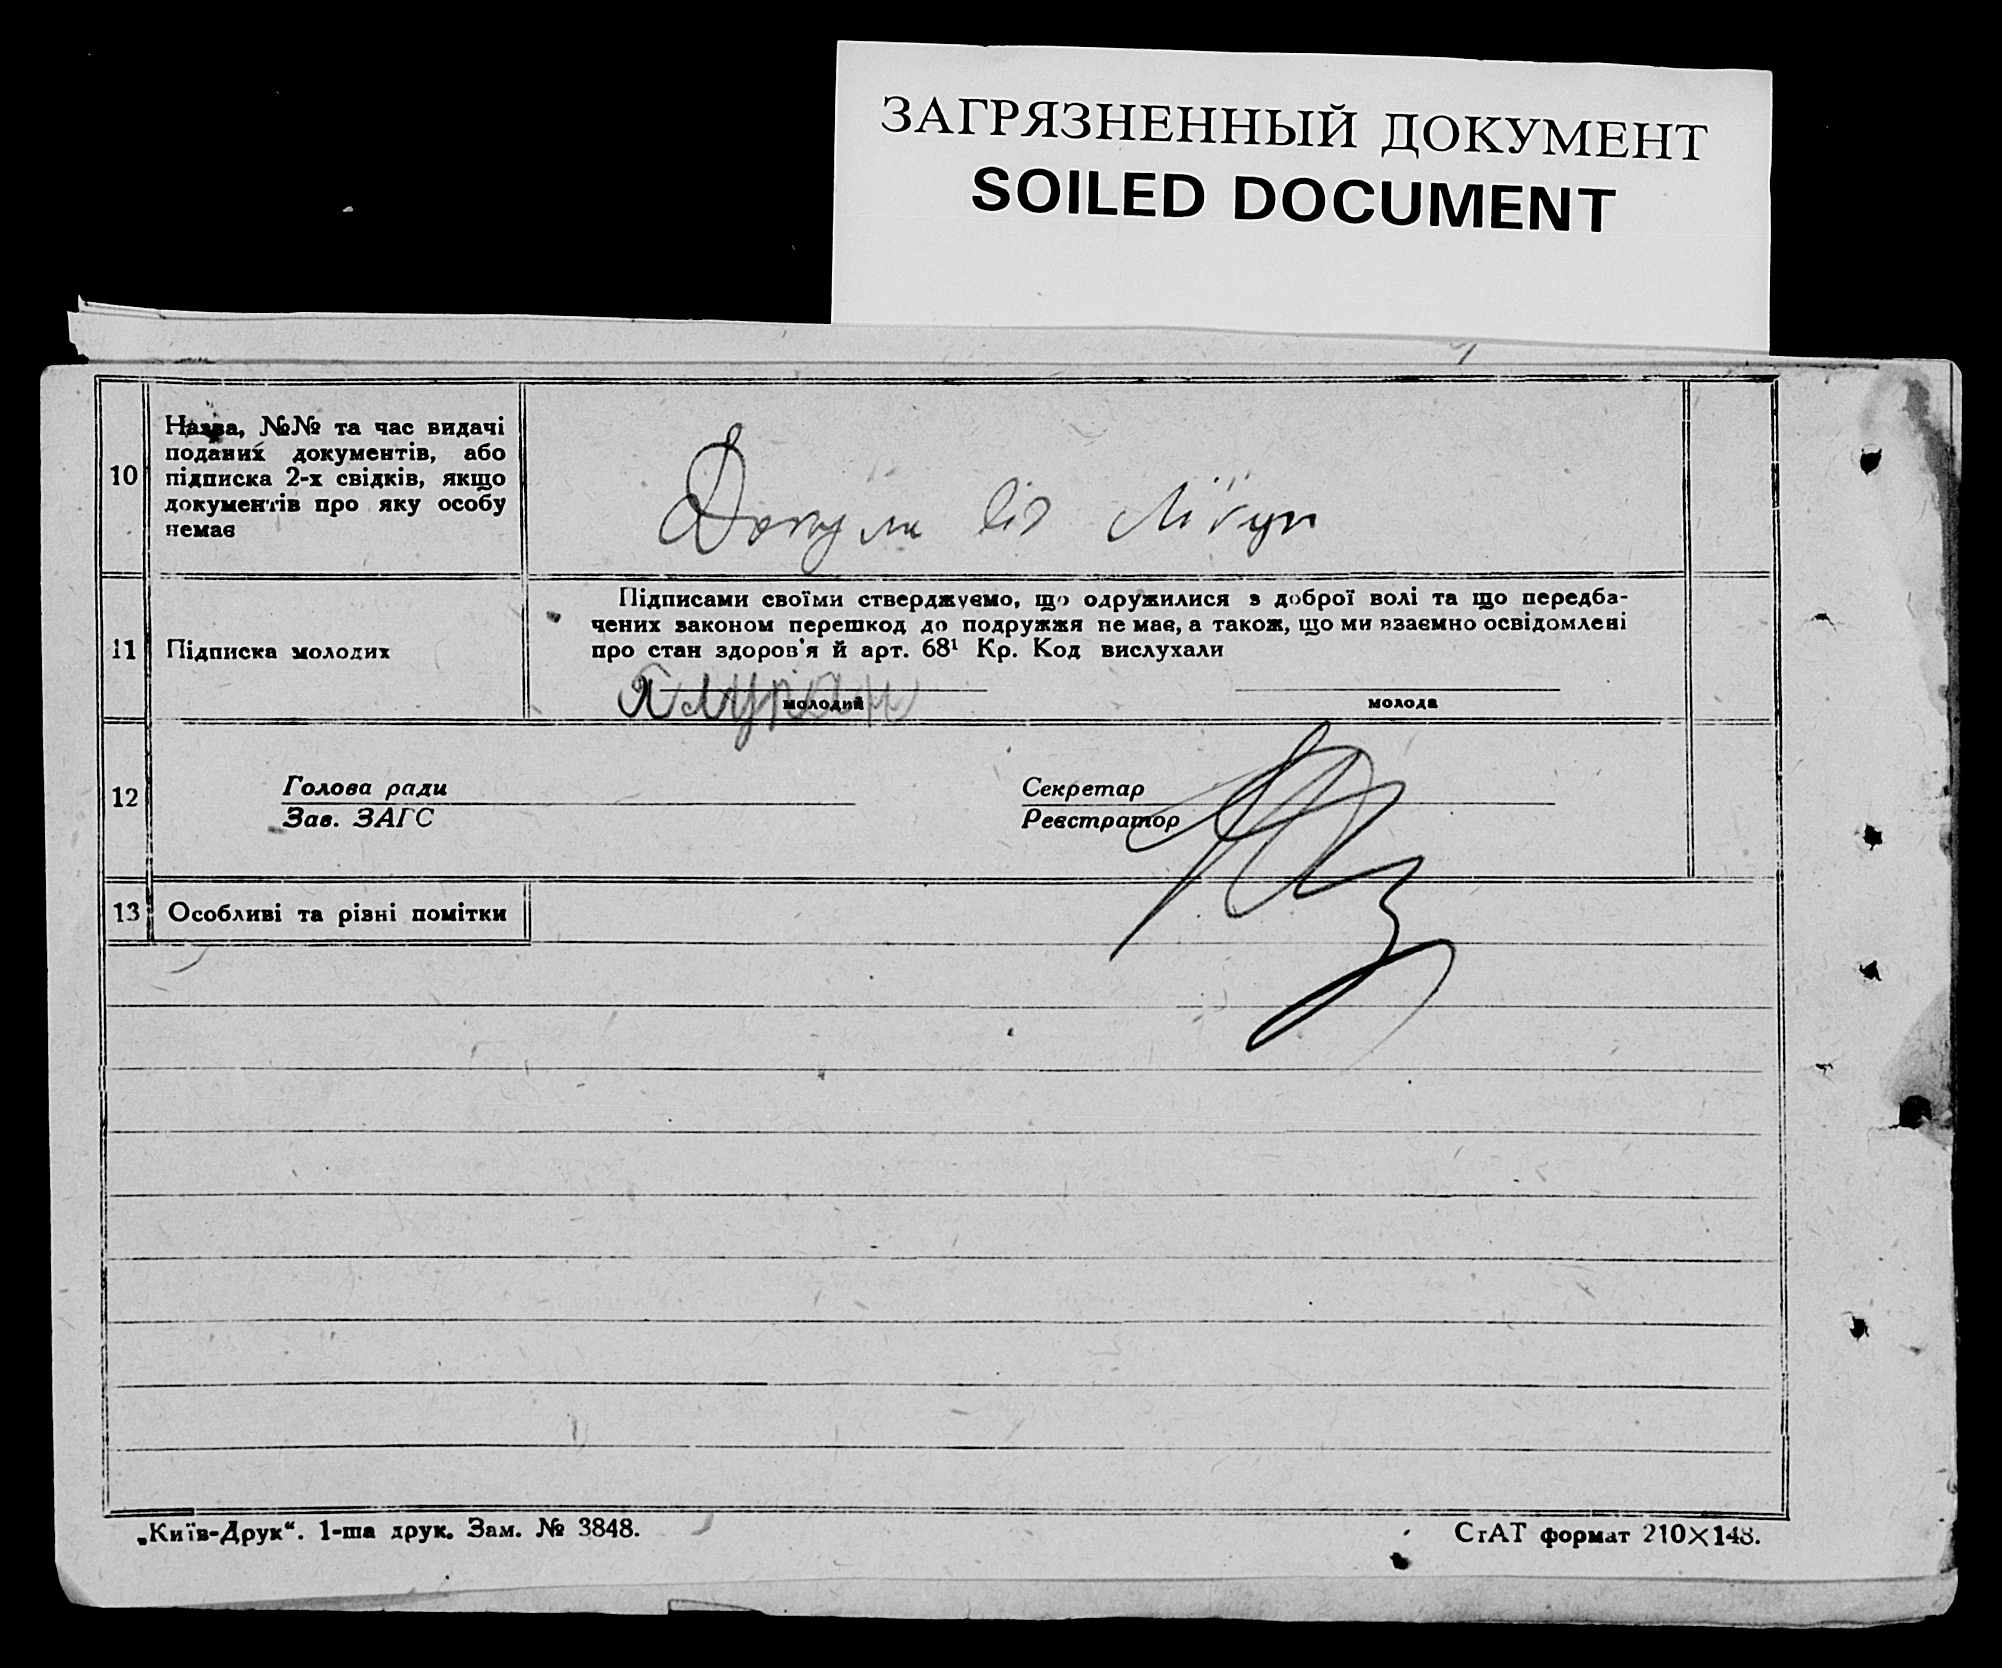 ЗАГРЯЗНЕННЫЙ ДОКУМЕНТ
SOILED DOCUMENT
10
Назва, №№ та час видачі
поданих документів, або
підписка 2-х свідків, якщо
документів про яку особу
немає
11
Підписка молодих
Підписами своїми стверджуємо, що одружилися з доброї волі та що передба-
чених законом перешкод до подружжя не має, а також, що ми взаємно освідомлені
про стан здоров'я й арт. 68¹ Кр. Код вислухали
молодий
молода
12
Голова ради
Зав. ЗАГС
Секретар
Реєстратор
13
Особливі та різні помітки
„Київ-Друк“. 1-ша друк. Зам. № 3848.
СтАТ формат 210×148.